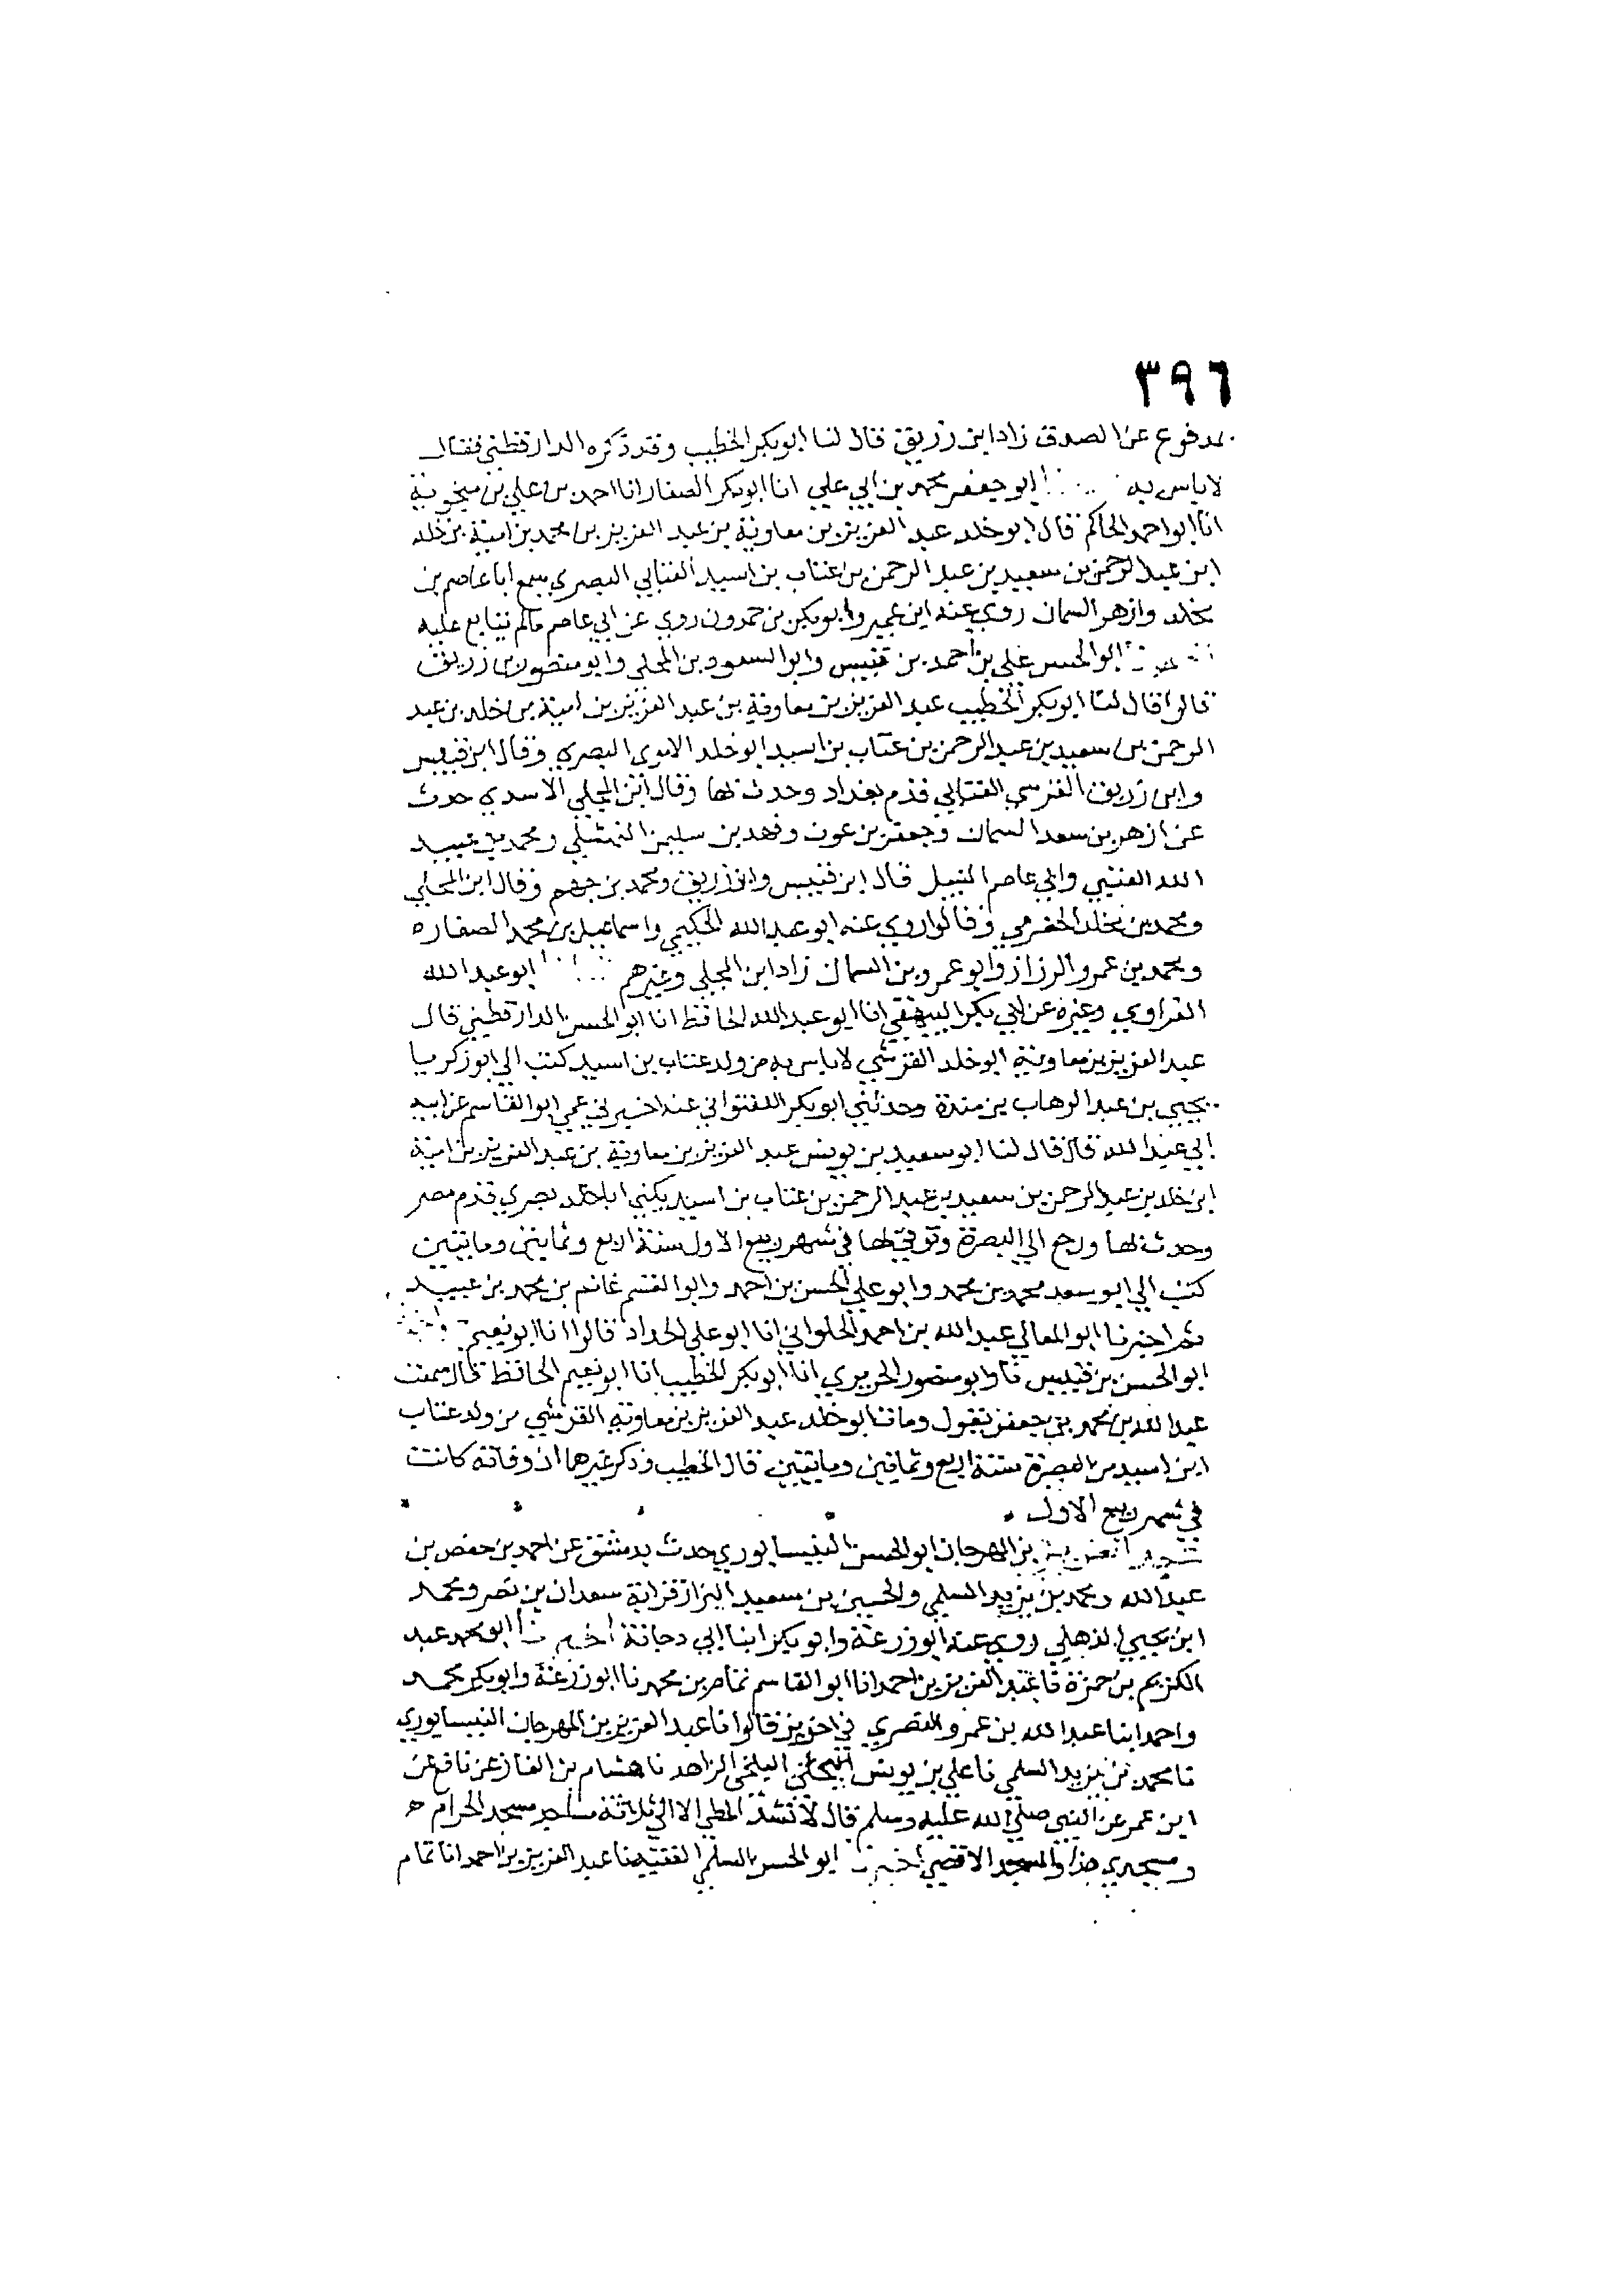 ٣٩٦
مدفوع عن الصدق زاد ابن زريق قال لنا ابو بكر الخطيب وقد ذكره الدارقطني فقال
لا باس به ابو جعفر محمد بن ابي علي انا ابو بكر الصفار انا احمد بن علي بن منجوية
انا ابو احمد الحاكم قال ابو خلد عبد العزيز بن معاوية بن عبد العزيز بن محمد بن امية بن خلد
ابن عبد الرحمن بن سعيد بن عبد الرحمن بن عتاب بن اسيد العتابي البصري سمع ابا عاصم بن
مخلد وازهر السمان روي عنه ابن عمير وابو بكر بن حمدون روي عن ابي عاصم مالم يتابع عليه
ابو الحسن علي بن احمد بن قبيس وابو السعود بن المجلي وابو منصور بن زريق
قالوا قال لنا ابو بكر الخطيب عبد العزيز بن معاوية بن عبد العزيز بن امية بن خلد بن عبد
الرحمن بن سعيد بن عبد الرحمن بن عتاب بن اسيد ابو خلد الاموي البصري وقال ابن قبيس
وابن زريق القرشي العتابي قدم بغداد وحدث بها وقال ابن المجلي الاسدي حدث
عن ازهر بن سعد السمان وجعفر بن عون وفهد بن سليمن النهشلي ومحمد بن عبيد
الله العتبي وابي عاصم النبيل قال ابن قبيس وابن زريق ومحمد بن جهضم وقال ابن المجلي
ومحمد بن مخلد الحضرمي وقالوا روي عنه ابو عبد الله الحكيمي واسماعيل بن محمد الصفار
ومحمد بن عمرو الرزاز وابو عمرو بن السماك زاد ابن المجلي وغيرهم ابو عبد الله
الفراوي وغيره عن ابي بكر البيهقي انا ابو عبد الله الحافظ انا ابو الحسن الدارقطني قال
عبد العزيز بن معاوية ابو خلد القرشي لا باس به من ولد عتاب بن اسيد كتب الي ابو زكريا
يحيي بن عبد الوهاب بن مندة وحدثني ابو بكر اللفتواني عنه اخبرني عمي ابو القاسم عن ابيه
ابي عبد الله قال قال لنا ابو سعيد بن يونس عبد العزيز بن معاوية بن عبد العزيز بن امية
ابن خلد بن عبد الرحمن بن سعيد بن عبد الرحمن بن عتاب بن اسيد يكني ابا خلد بصري قدم مصر
وحدث بها ورجع الي البصرة وتوفي بها في شهر ربيع الاول سنة اربع وثمانين ومايتين
كتب الي ابو سعد محمد بن محمد وابو علي الحسن بن احمد وابو القسم غانم بن محمد بن عبيد
ثم اخبرنا ابو المعالي عبد الله بن احمد الحلواني انا ابو علي الحداد قالوا انا ابو نعيم
ابو الحسن بن قبيس نا وابو منصور الحريري انا ابو بكر الخطيب انا ابو نعيم الحافظ قال سمعت
عبد الله بن محمد بن جعفر يقول ومات ابو خلد عبد العزيز بن معاوية القرشي من ولد عتاب
ابن اسيد من البصرة سنة اربع وثمانين ومايتين قال الخطيب وذكر غيرهما ان وفاته كانت
في شهر ربيع الاول
بن المهرجان ابو الحسن النيسابوري حدث بدمشق عن احمد بن حفص بن
عبد الله ومحمد بن يزيد السلمي والحسين بن سعيد البزاز قرابة سعدان بن نصر ومحمد
ابن يحيي الذهلي روي عنه ابو زرعة وابو بكر ابنا ابي دجانة ابو محمد عبد
الكريم بن حمزة نا عبد العزيز بن احمد انا ابو القاسم تمام بن محمد نا ابو زرعة وابو بكر محمد
واحمد ابنا عبد الله بن عمرو النصري في اخرين قالوا نا عبد العزيز بن المهرجان النيسابوري
نا محمد بن يزيد السلمي نا علي بن يونس البلخي الزاهد نا هشام بن الغاز عن نافع عن
ابن عمر عن النبي صلي الله عليه وسلم قال لا تشد المطي الا الي ثلاثة مساجد مسجد الحرام
ومسجدي هذا والمسجد الاقصي ابو الحسن السلمي الفقيه نا عبد العزيز بن احمد انا تمام